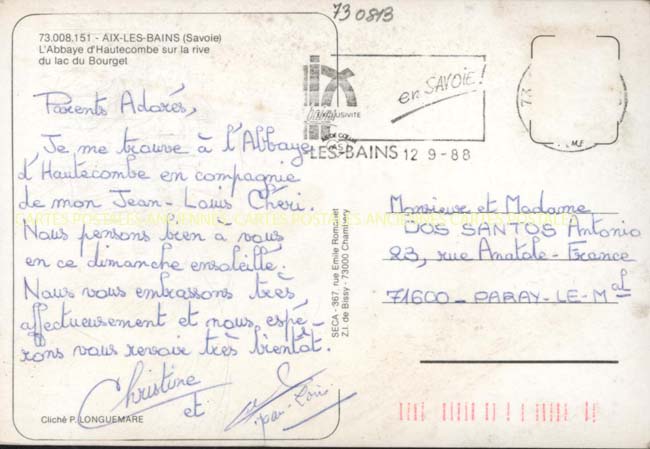 73 0813
73.008.151 - AIX-LES-BAINS (Savoie)
L'Abbaye d'Hautecombe sur la rive
du lac du Bourget
Parents Adorés,
Je me trouve à l'Abbaye
d'Hautecombe en compagnie
de mon Jean-Louis Chéri.
Nous pensons bien à vous
en ce dimanche ensoleillé.
Nous vous embrassons très
affectueusement et nous espé-
rons vous revoir très bientôt.
Christine
et
Jean-Louis
Cliché P. LONGUEMARE
SECA - 367, rue Emile Romanet
Z.I. de Bissy - 73000 Chambéry
en SAVOIE!
EXCLUSIVITE
-LES-BAINS 12 9-88
Monsieur et Madame
DOS SANTOS Antonio
23, rue Anatole-France
71600 - PARAY-LE-Mal
CARTES POSTALES ANCIENNES CARTES POSTALES ANCIENNES CARTES POSTALES ANCIENNES